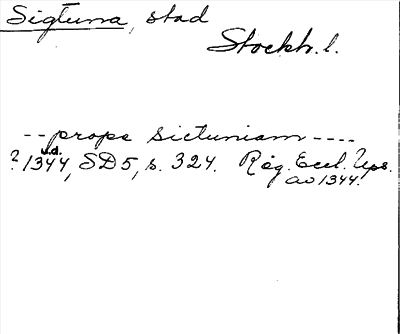 Sigtuna, stad
Stockh. l.
-- prope Sictuniam ----
u.d.
? 1344, SD 5, s. 324. Reg. Eccl. Ups.
av 1344.